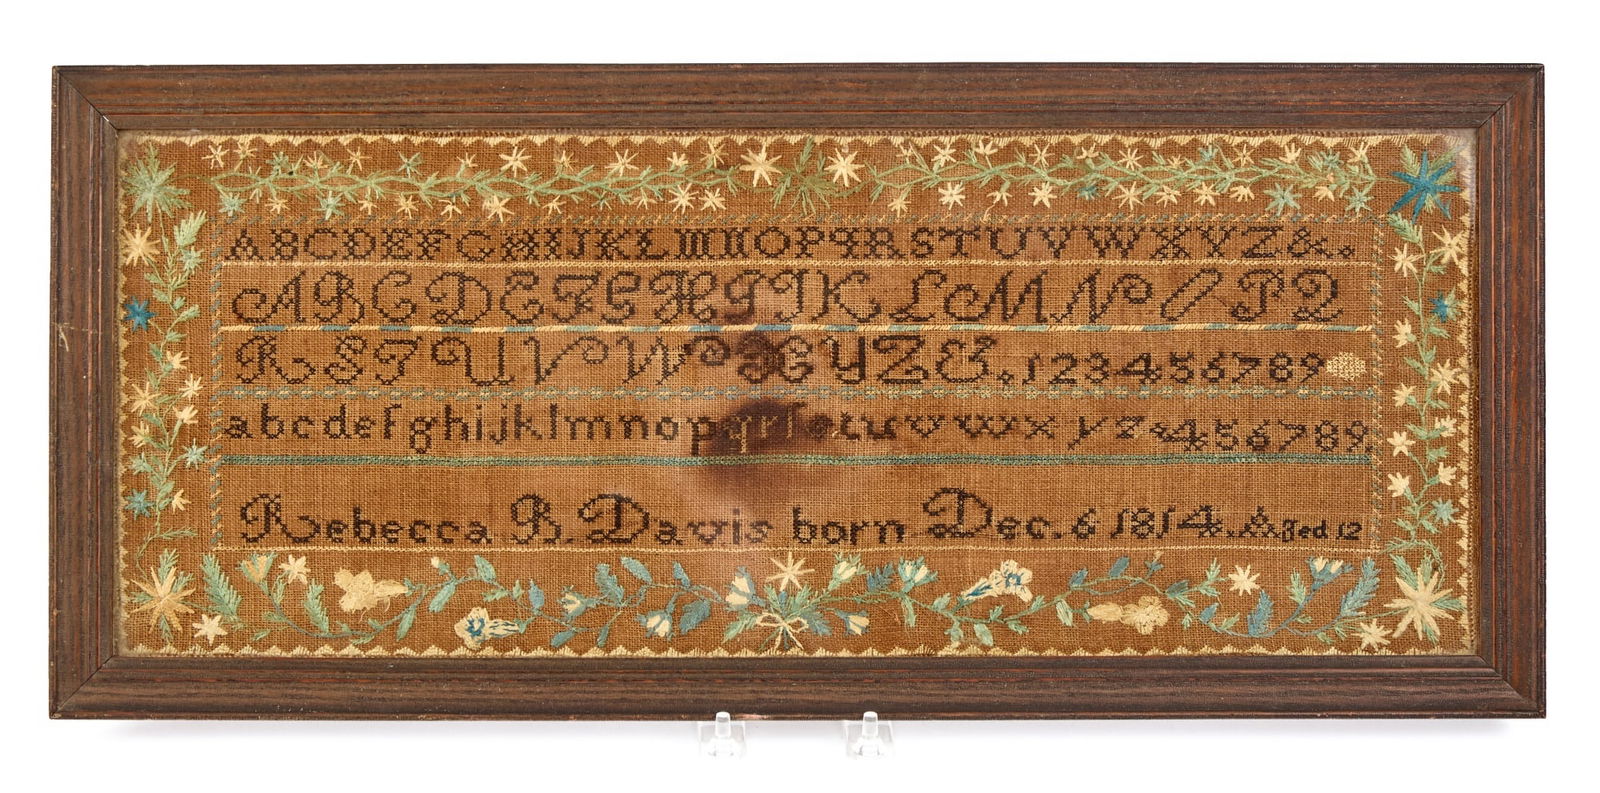 ABCDEFGHIJKLMNOPQRSTUVWXYZ&.
ABCDEFGHIJKLMNOPQ
RSTUVWXYZ&.123456789
abcdefghijklmnopqrſstuvwxyz3456789
Rebecca B. Davis born Dec. 6 1814. Aged 12